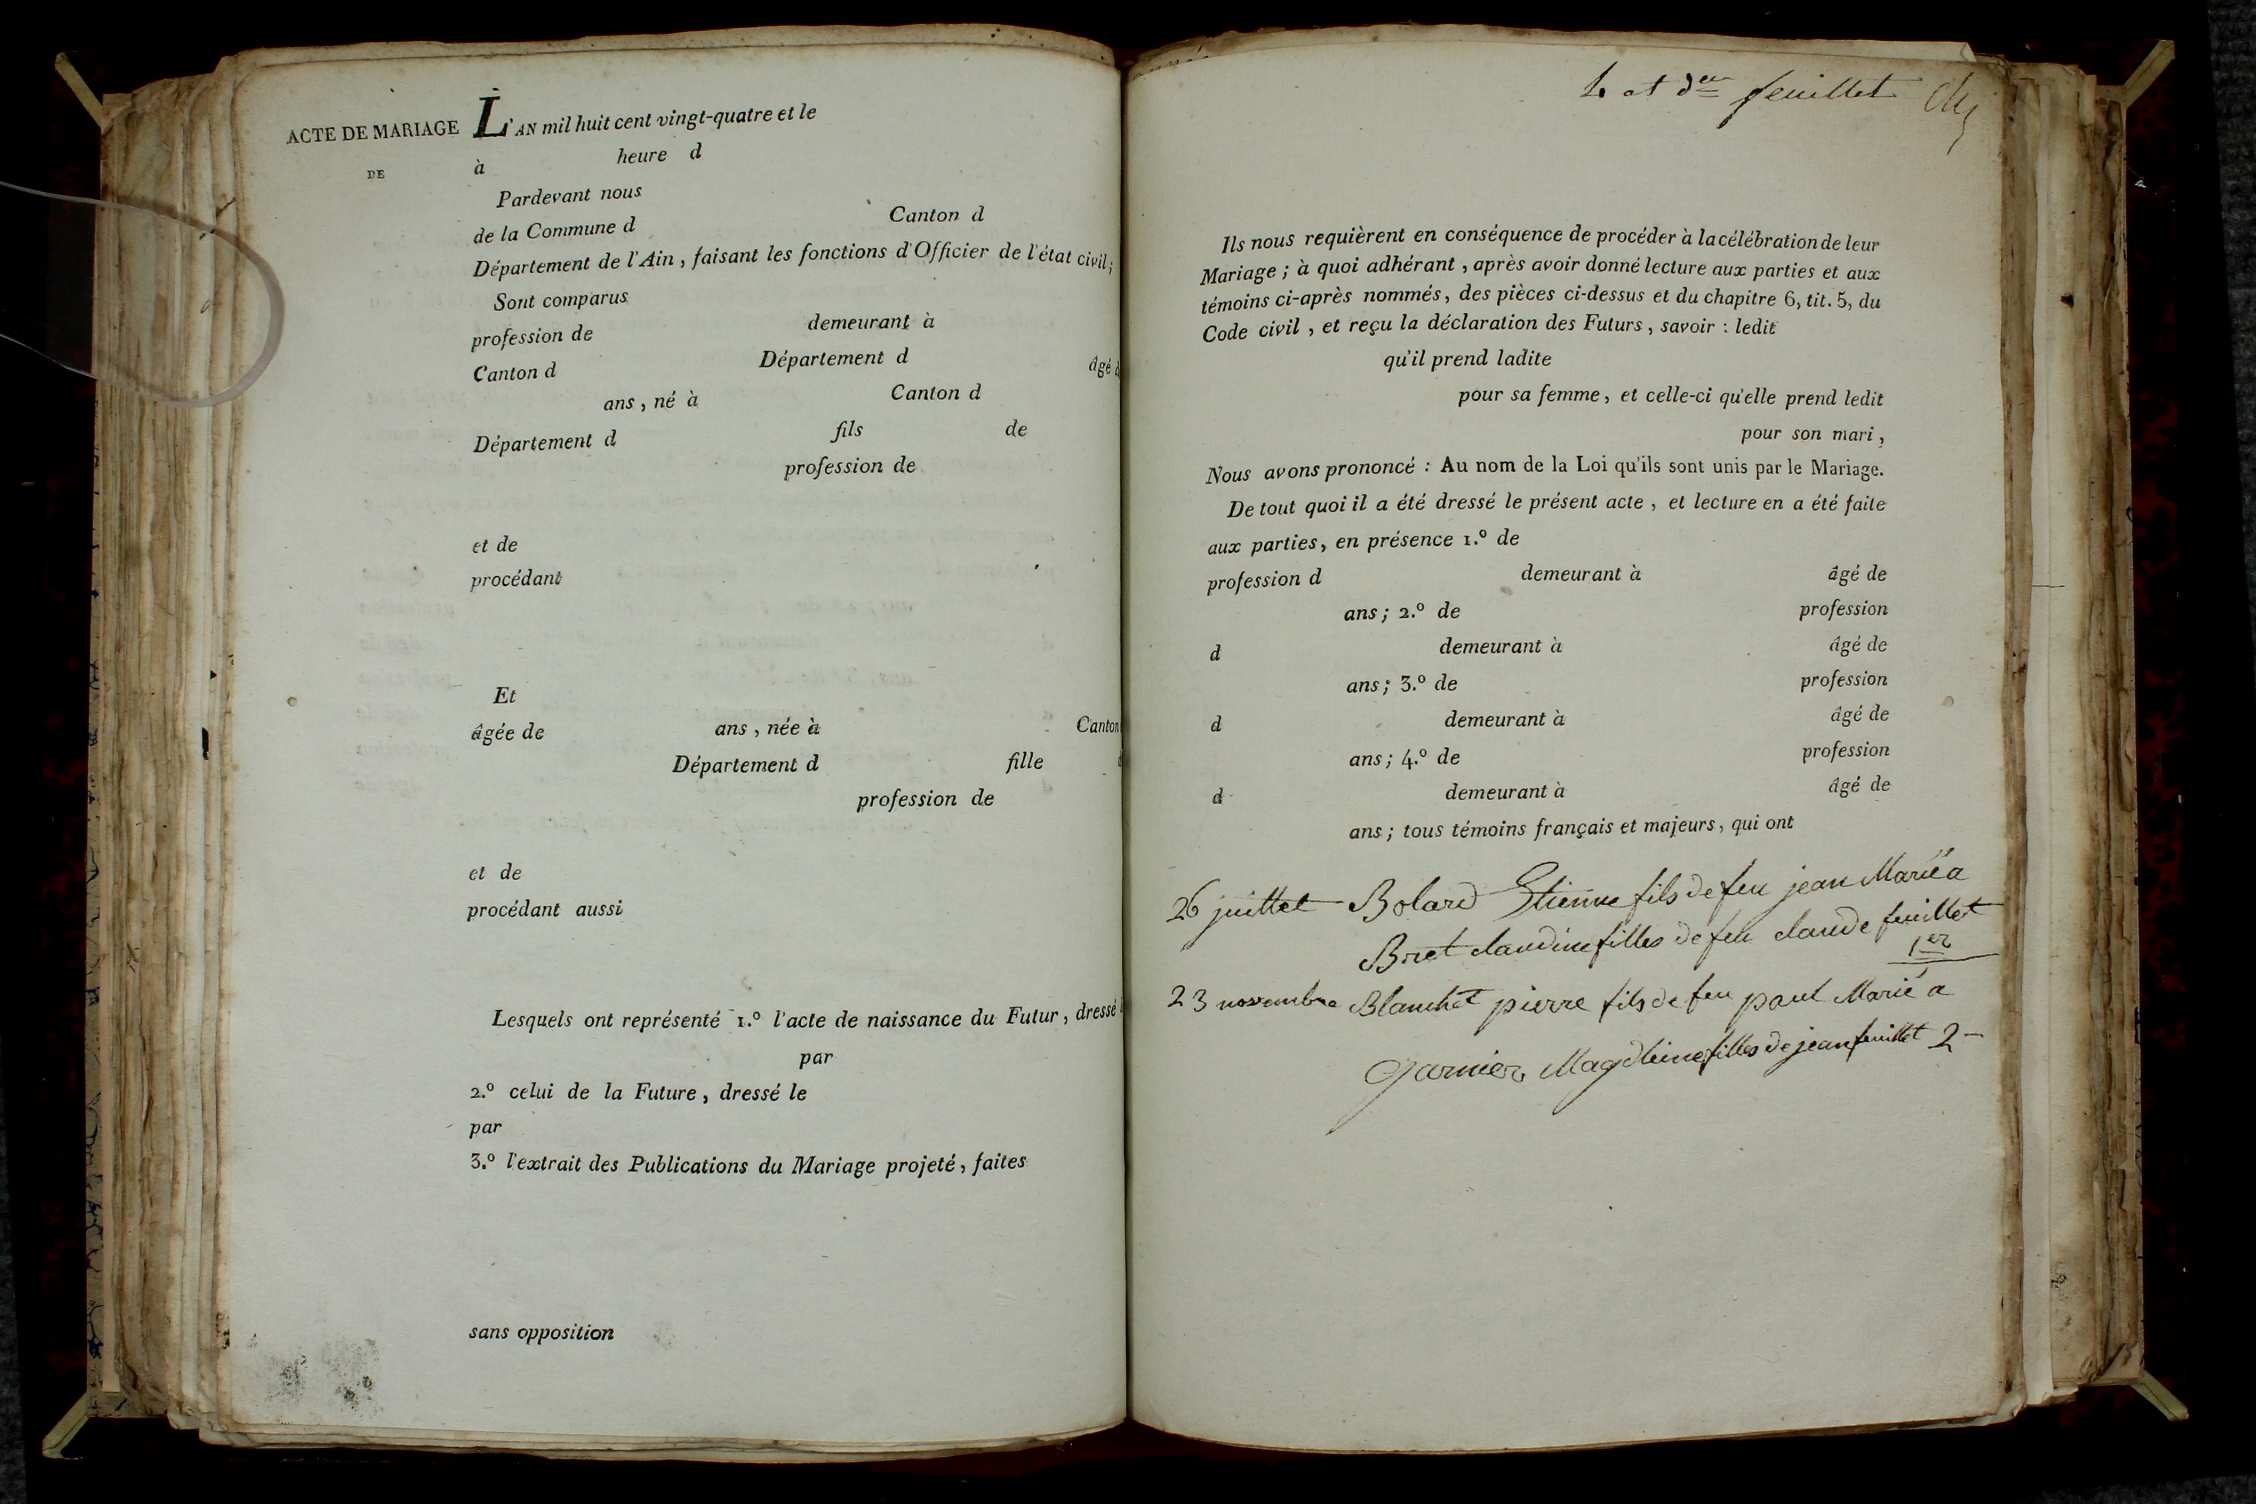 ACTE DE MARIAGE
DE
L'AN mil huit cent vingt-quatre et le
à heure d
Pardevant nous
de la Commune d Canton d
Département de l'Ain, faisant les fonctions d'Officier de l'état civil;
Sont comparus
profession de demeurant à
Canton d Département d âgé d
ans, né à Canton d
Département d fils de
profession de
et de
procédant
Et
âgée de ans, née à Canton
Département d fille d
profession de
et de
procédant aussi
Lesquels ont représenté 1.º l'acte de naissance du Futur, dressé
par
2.º celui de la Future, dressé le
par
3.º l'extrait des Publications du Mariage projeté, faites
sans opposition
et der feuillet
Ils nous requièrent en conséquence de procéder à la célébration de leur
Mariage; à quoi adhérant, après avoir donné lecture aux parties et aux
témoins ci-après nommés, des pièces ci-dessus et du chapitre 6, tit. 5, du
Code civil, et reçu la déclaration des Futurs, savoir : ledit
qu'il prend ladite
pour sa femme, et celle-ci qu'elle prend ledit
pour son mari,
Nous avons prononcé : Au nom de la Loi qu'ils sont unis par le Mariage.
De tout quoi il a été dressé le présent acte, et lecture en a été faite
aux parties, en présence 1.º de
profession d demeurant à âgé de
ans; 2.º de profession
d demeurant à âgé de
ans; 3.º de profession
d demeurant à âgé de
ans; 4.º de profession
d demeurant à âgé de
ans; tous témoins français et majeurs, qui ont
26 juillet Bolard Etienne fils de feu jean Marié a
Bret claudine filles de feu claude feuillet
1er
23 novembre Blanchet pierre fils de feu paul Marié a
Garnier Magdleine filles de jean feuillet 2